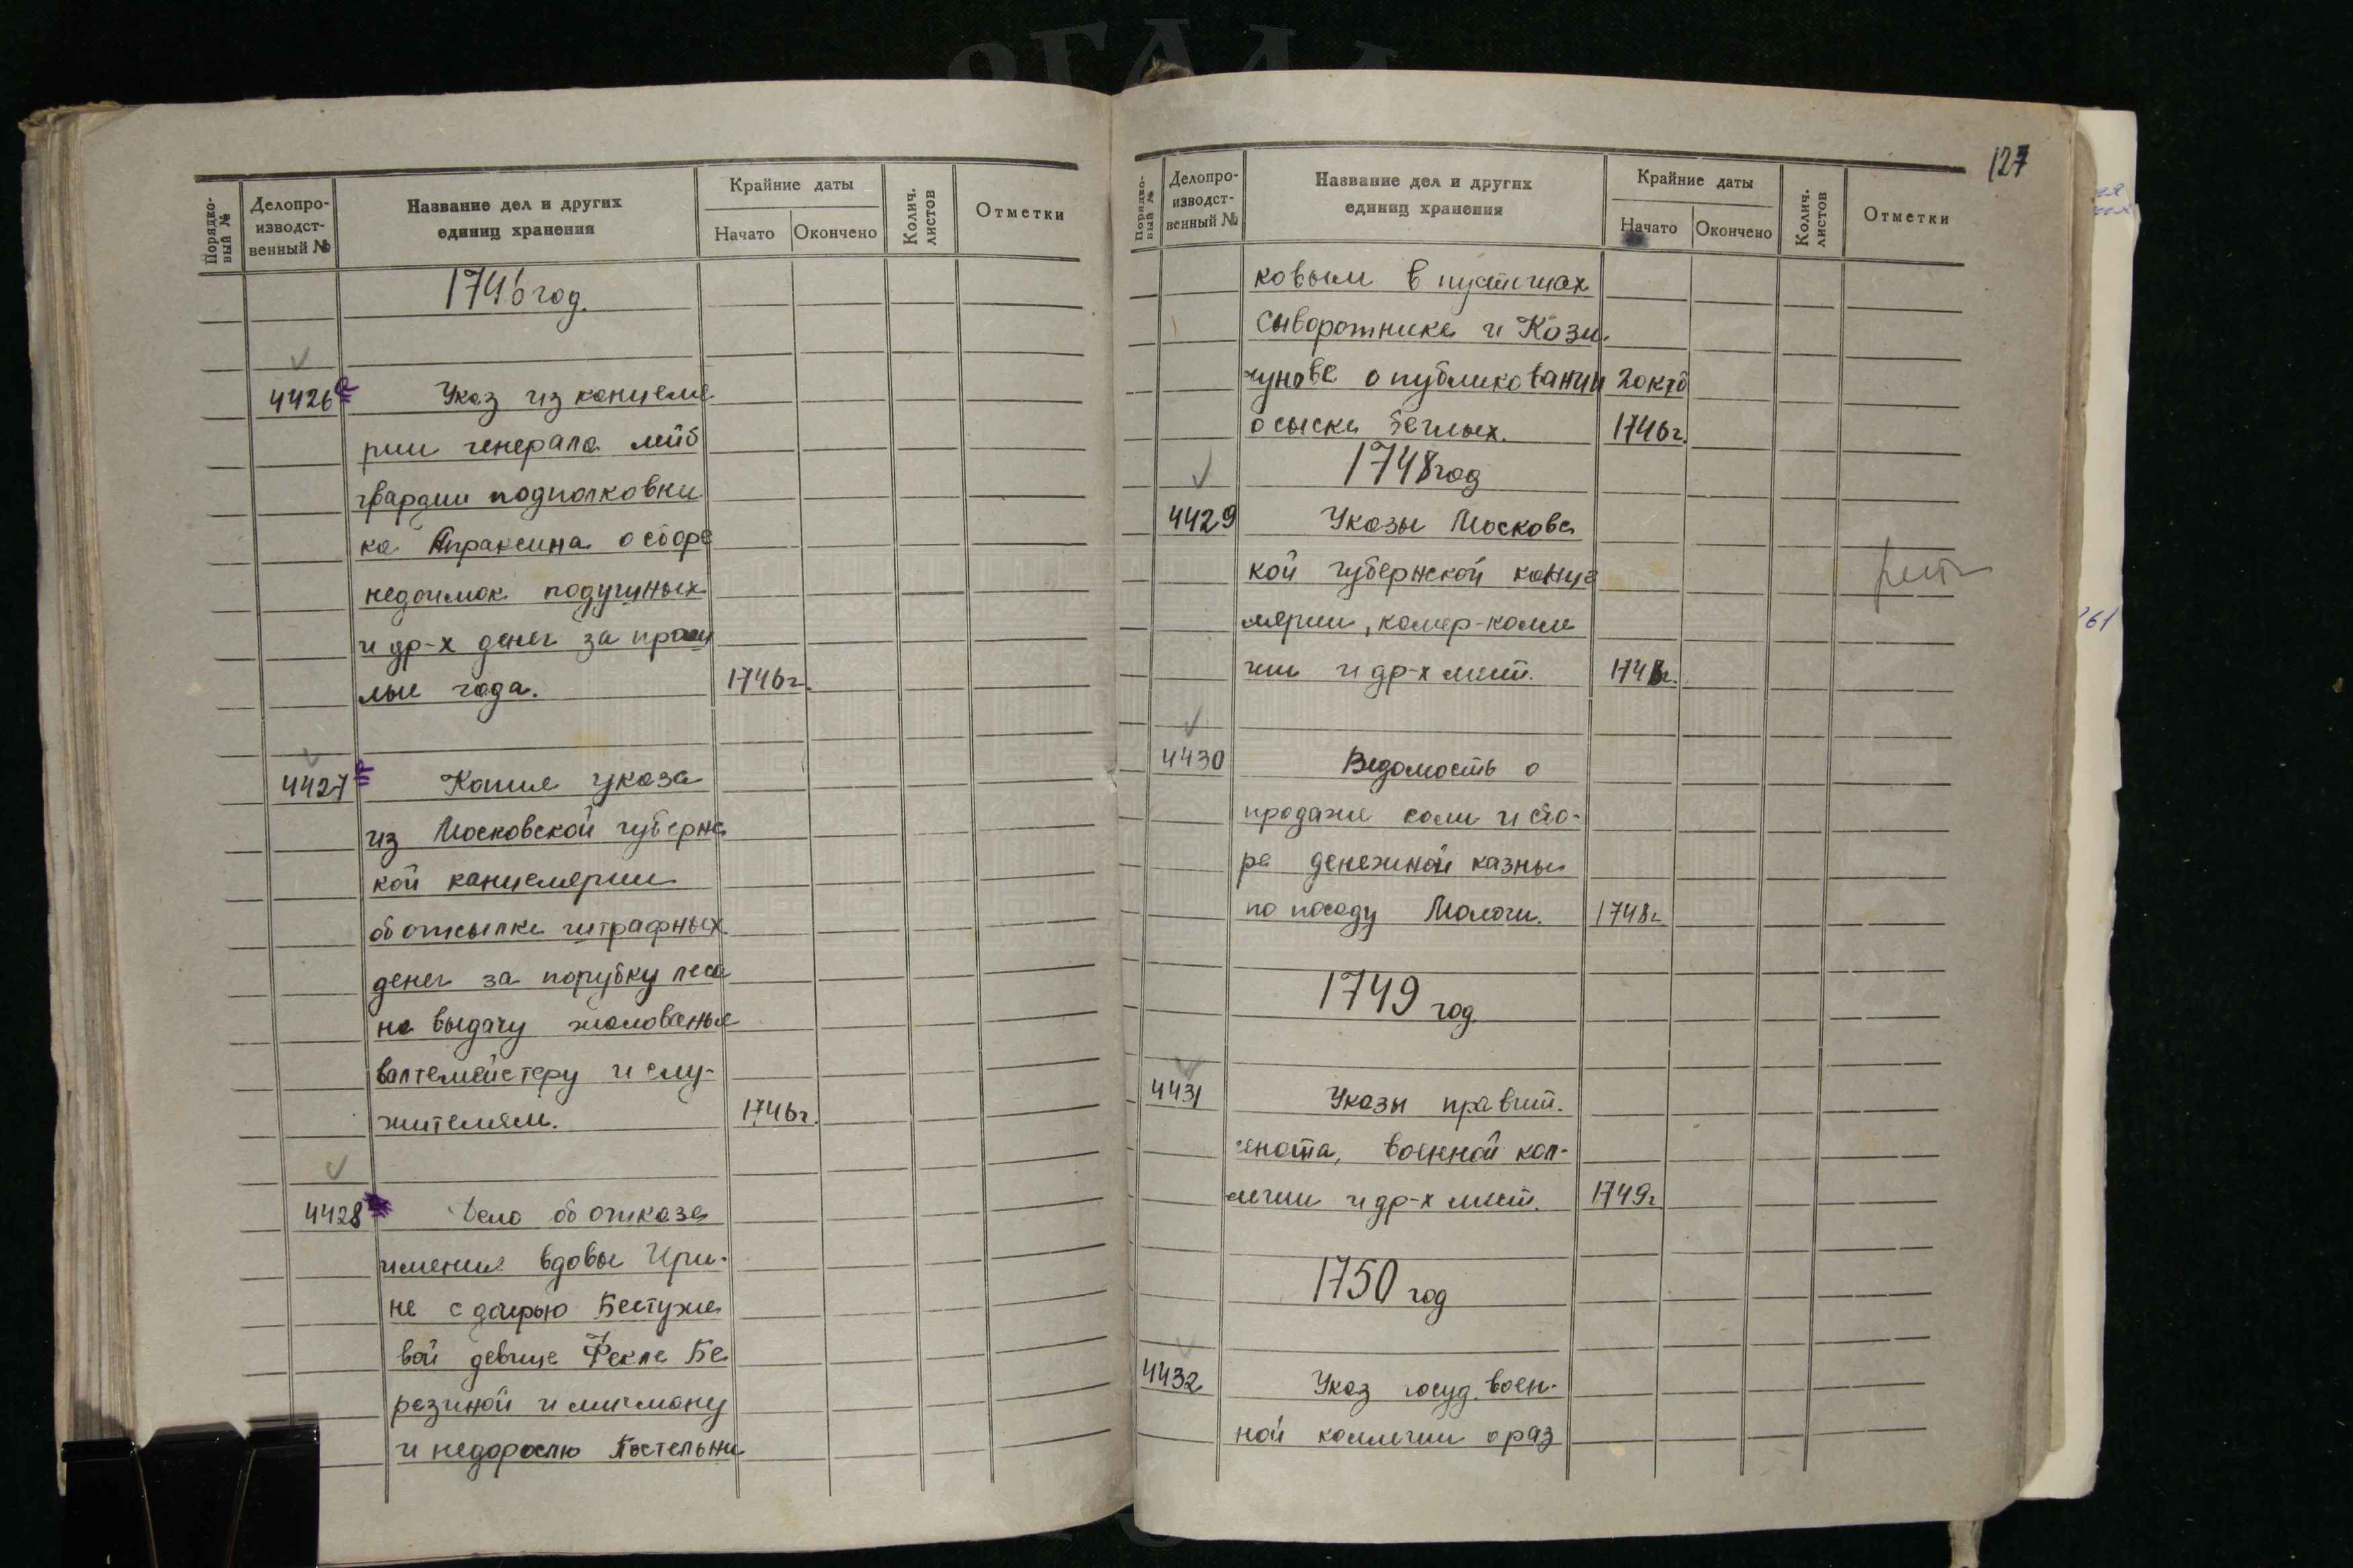 Порядко-
вый №
Делопро-
изводст-
венный №
Название дел и других
единиц хранения
Крайние даты
Начато
Окончено
Колич.
листов
Отметки
1746 год.
4426 Указ из канцеля
рии генерала лейб
гвардии подполковни
ка Апраксина о сборе
недоимок подушных
и др-х денег за прош
лые года. 1746 г.
4427 Копия указа
из Московской губернс
кой канцелярии
об отсылке штрафных
денег за порубку леса
на выдачу жалованья
валтемейстеру и слу-
жителям. 1746 г.
4428 Дело об отказе
имения вдовы Ири-
не с дочерью Бестуже
вой девице Фекле Бе
резиной и мичману
и недорослю Постельни
127
Порядко-
вый №
Делопро-
изводст-
венный №
Название дел и других
единиц хранения
Крайние даты
Начато
Окончено
Колич.
листов
Отметки
ковым в пустошах
Сыворотнике и Кози-
чунове о публиковании 2 октб
о сыске беглых. 1746 г.
1748 год
4429 Указы Московс
кой губернской канце
лярии, камер-колле
гии и др-х мест. 1748 г.
4430 Ведомость о
продаже соли и сбо-
ре денежной казны
по посаду Мологи. 1748 г.
1749 год
4431 Указы правит.
сената, военной кол-
легии и др-х мест. 1749 г.
1750 год
4432 Указ госуд. воен-
ной коллегии о раз
61